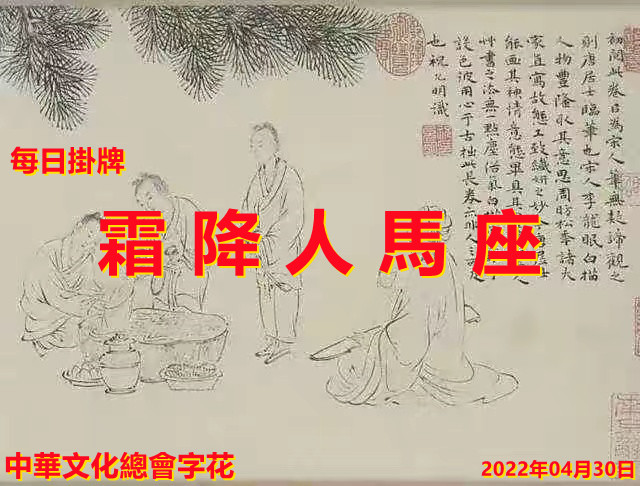 初閱此卷以為宋人筆無疑諦觀之
則唐居士臨筆也宋人李龍眠白描
人物豐隆収其意思周昉松年諸大
家直寫故態工致纖妍之妙
能画其神情意態畢具其
艸書之添無一點塵俗氣白
設色彼用心于古拙此長卷亦非人
也祝允明識
每日掛牌
霜降人馬座
中華文化總會字花
2022年04月30日